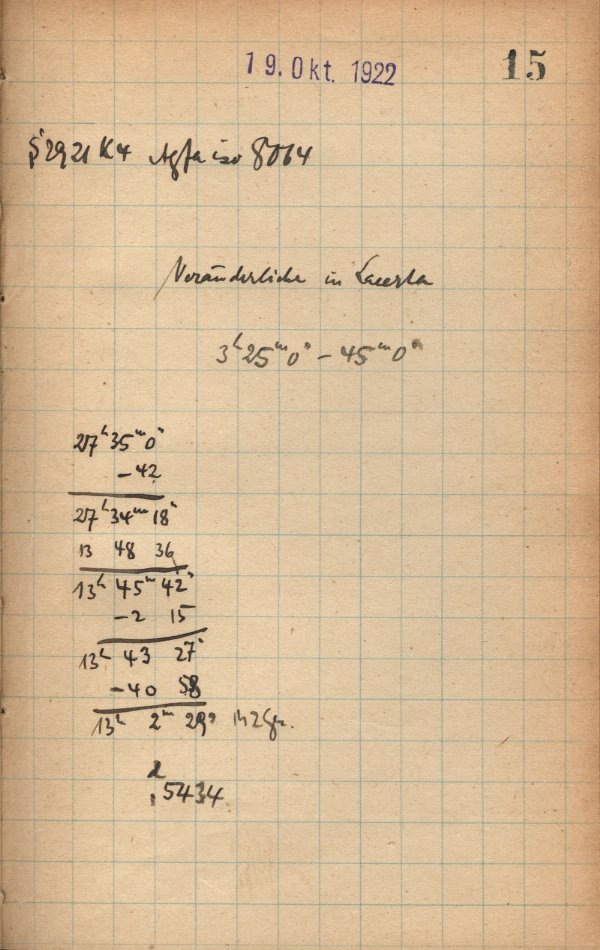 19. Okt. 1922
15
2921 K4 Agfa iso 8064
Veränderliche in Lacerta
3ʰ25ᵐ0ˢ – 45ᵐ0ˢ
27ʰ35ᵐ0ˢ
– 42
27ʰ34ᵐ18ˢ
13 48 36
13ʰ45ᵐ42ˢ
–2 15
13ʰ 43 27ˢ
–40 58
13ʰ 2ᵐ 29ˢ
d
.5434